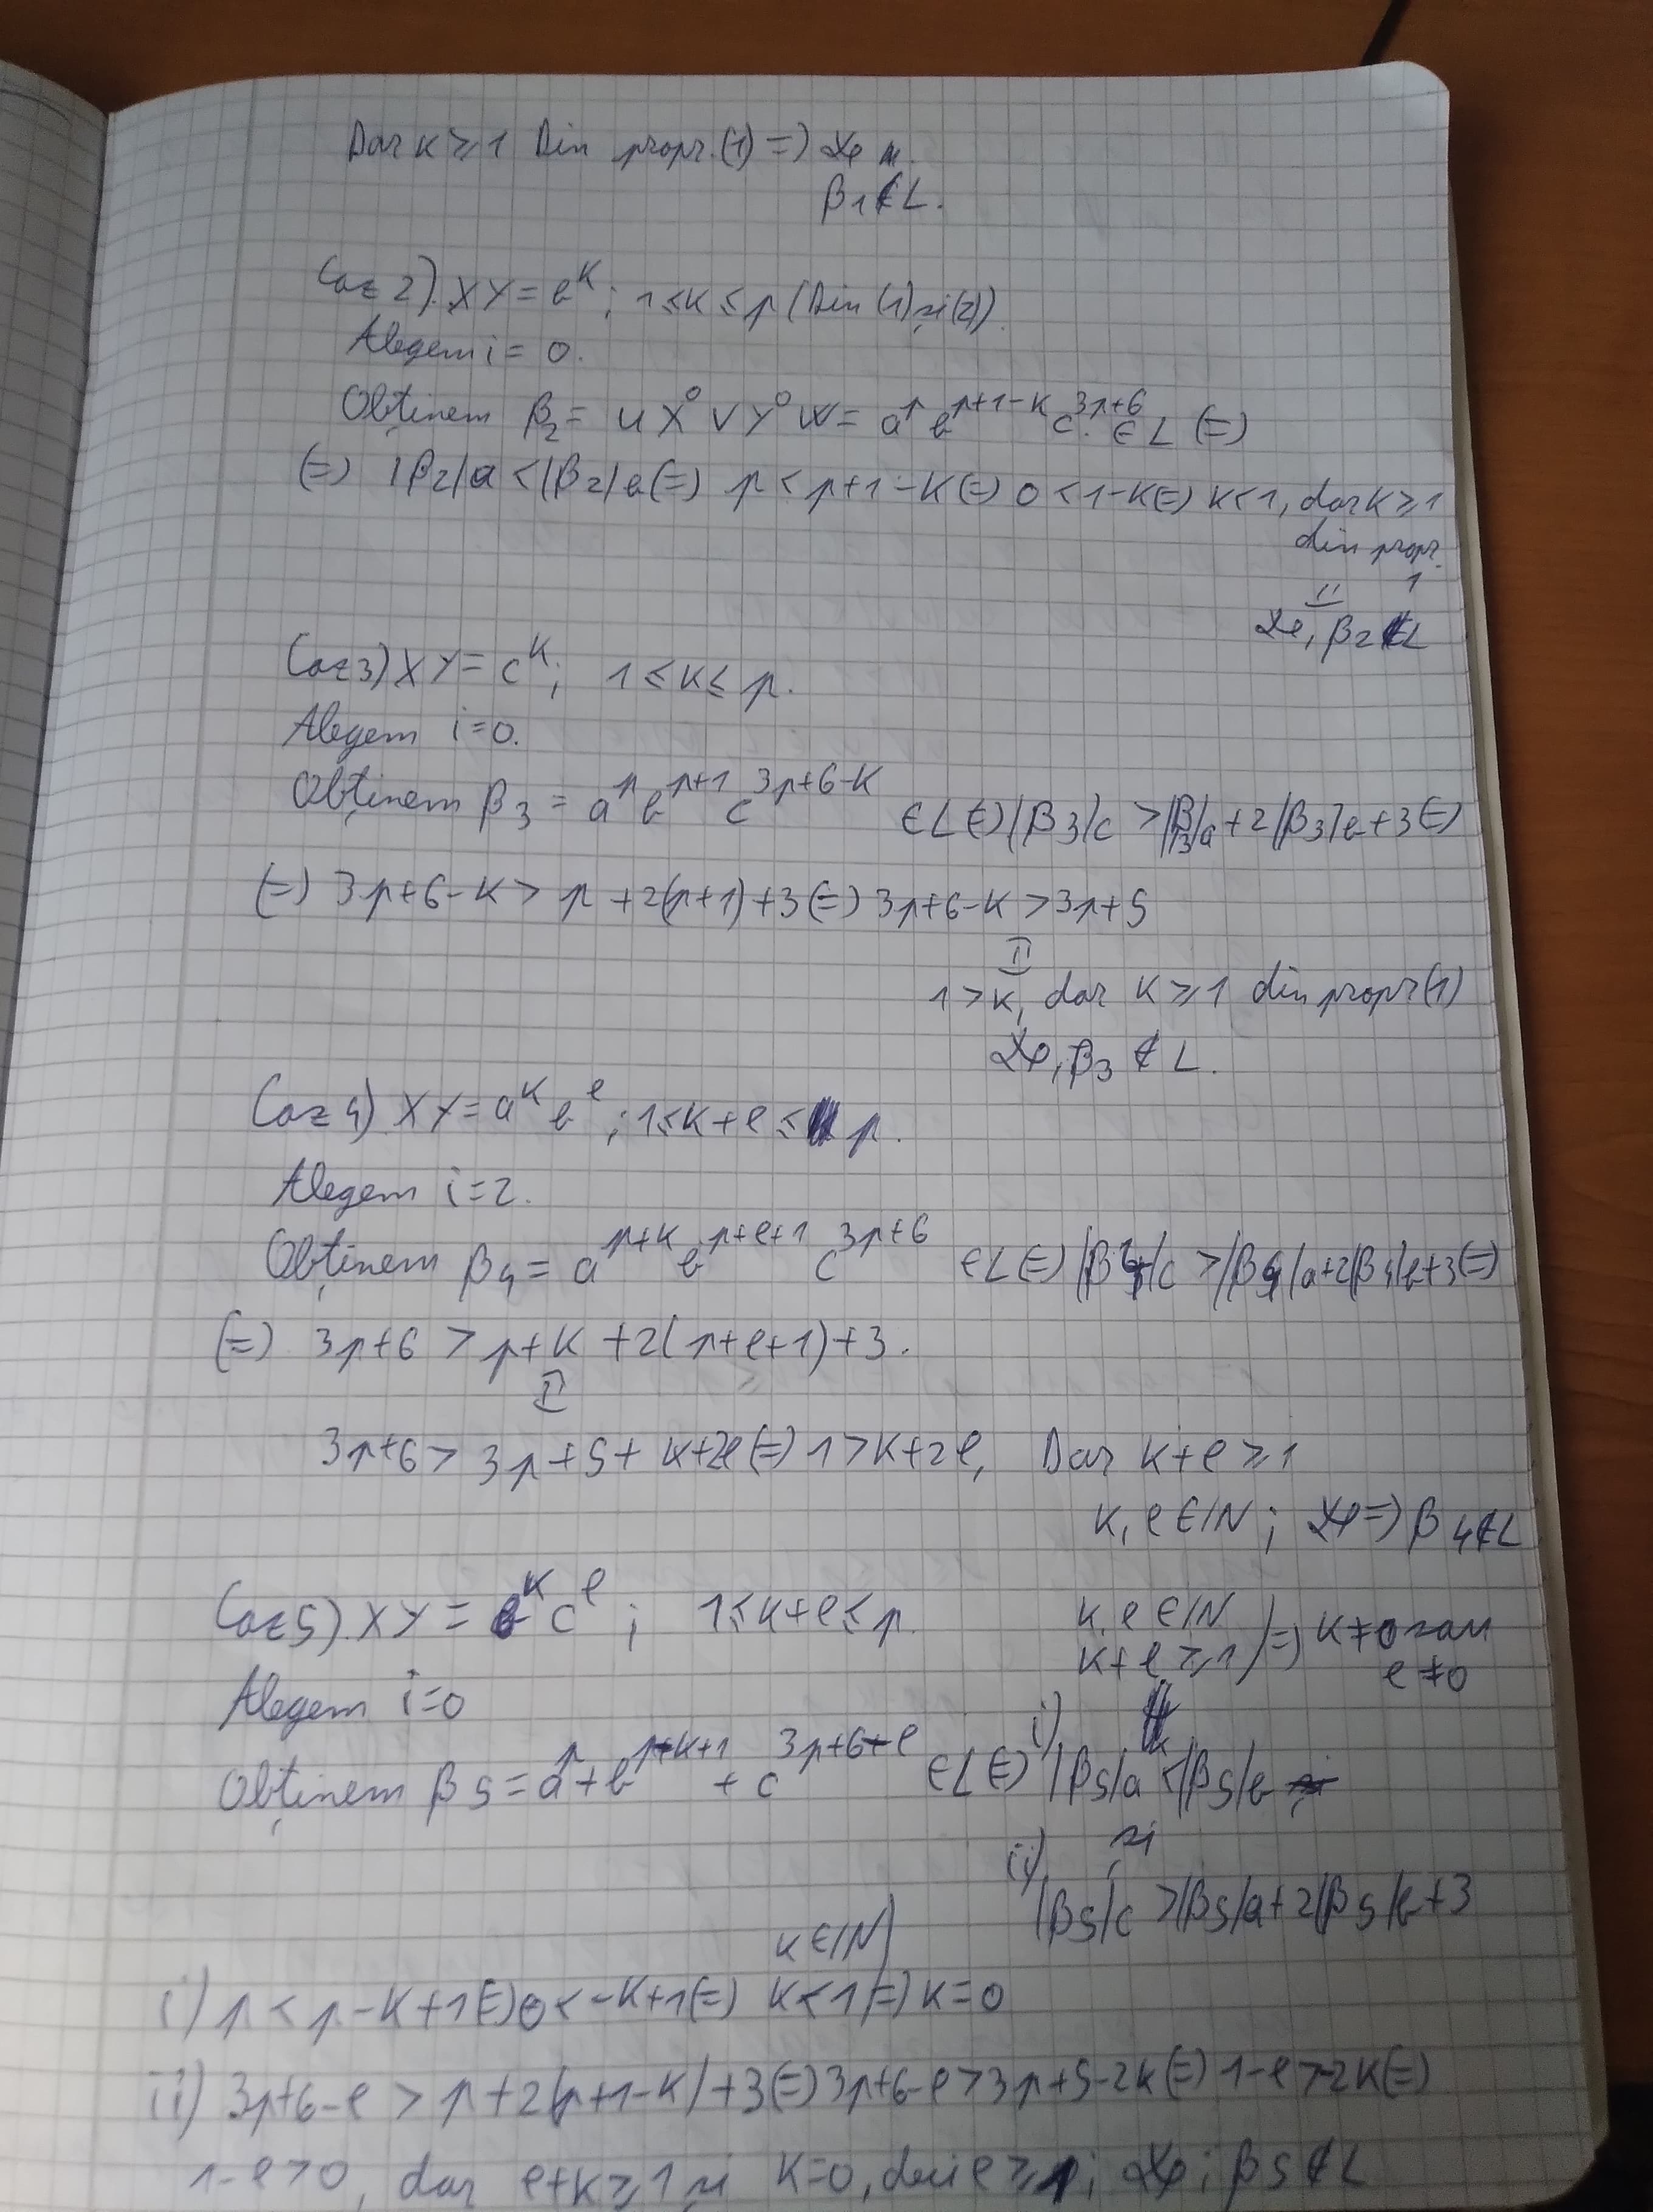 Dar k ≥ 1 Din propr.(1) =)
β1 ∉ L.
Caz 2). XY = b^k ; 1 ≤ k ≤ p (Din (1) și (2)).
Alegem i = 0.
Obținem β2 = u X^0 V Y^0 W = a^p b^{p+1-k} c^{3p+6} ∈ L (=)
(=) |β2|a < |β2|b (=) p < p+1-k (=) 0 < 1-k (=) k < 1, dar k ≥ 1
din propr.
1
β2 ∉ L
Caz 3) XY = c^k ; 1 ≤ k ≤ p.
Alegem i = 0.
Obținem β3 = a^p b^{p+1} c^{3p+6-k} ∈ L (=) |β3|c > |β3|a + 2|β3|b + 3 (=)
(=) 3p+6-k > p + 2(p+1) + 3 (=) 3p+6-k > 3p+5
1 > k, dar k ≥ 1 din propr (1)
β3 ∉ L.
Caz 4) XY = a^k b^l ; 1 ≤ k+l ≤ p.
Alegem i = 2.
Obținem β4 = a^{p+k} b^{p+l+1} c^{3p+6} ∈ L (=) |β4|c > |β4|a + 2|β4|b + 3 (=)
(=) 3p+6 > p+k + 2(p+l+1) + 3.
3p+6 > 3p+5 + k+2l (=) 1 > k+2l, Dar k+l ≥ 1
k, l ∈ IN ; =) β4 ∉ L
Caz 5). XY = b^k c^l ; 1 ≤ k+l ≤ p. k, l ∈ IN
k+l ≥ 1 ) =) k ≠ 0 sau
l ≠ 0
Alegem i = 0
Obținem β5 = a^p + b^{p-k+1} + c^{3p+6-l} ∈ L (=) i) |β5|a < |β5|b
și
ii) |β5|c > |β5|a + 2|β5|b + 3
k ∈ IN
i) p < p-k+1 (=) 0 < -k+1 (=) k < 1 =) k = 0
ii) 3p+6-l > p + 2(p+1-k) + 3 (=) 3p+6-l > 3p+5-2k (=) 1-l > -2k (=)
1-l > 0, dar l+k ≥ 1 și k = 0, deci l ≥ 1 ; β5 ∉ L